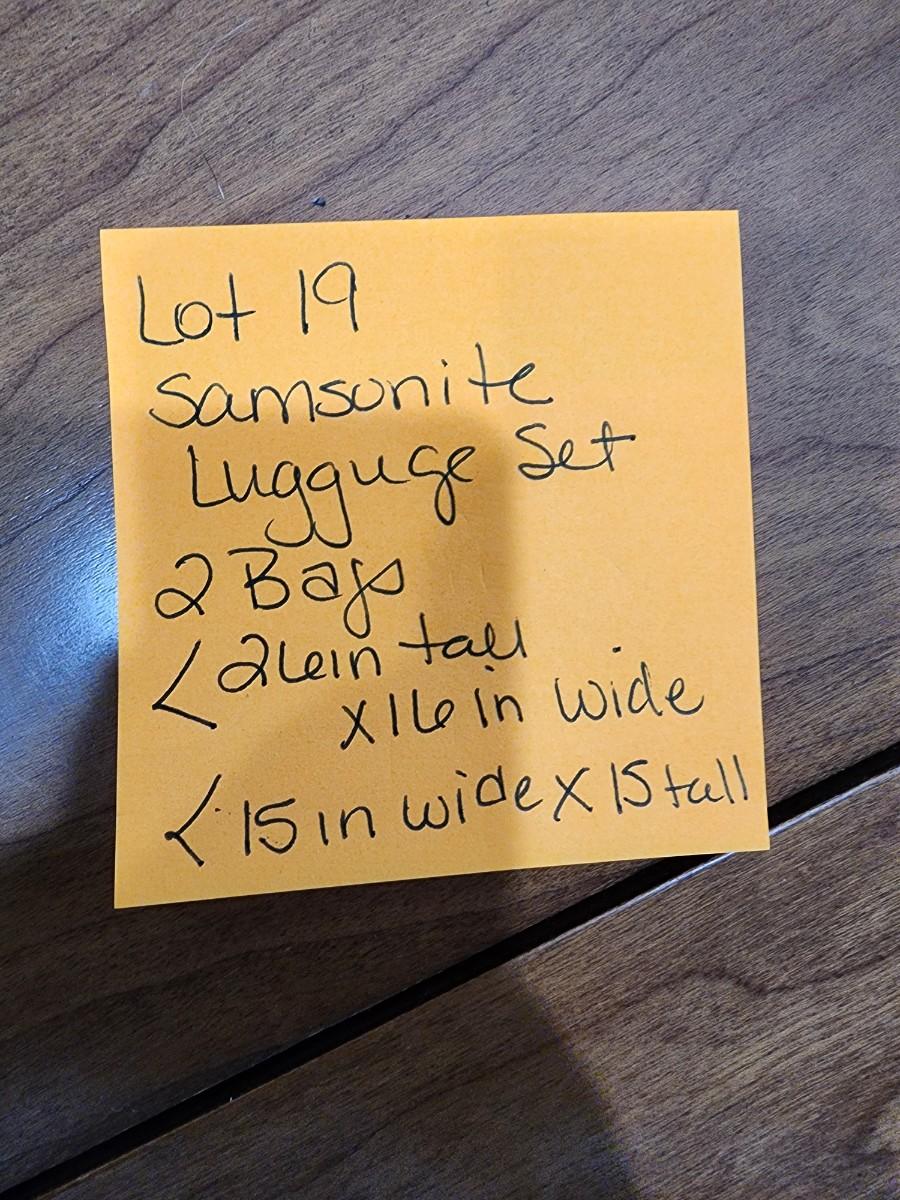 Lot 19
Samsonite
Lugguge Set
2 Bags
< 26in tall
x16 in wide
< 15 in wide x 15 tall